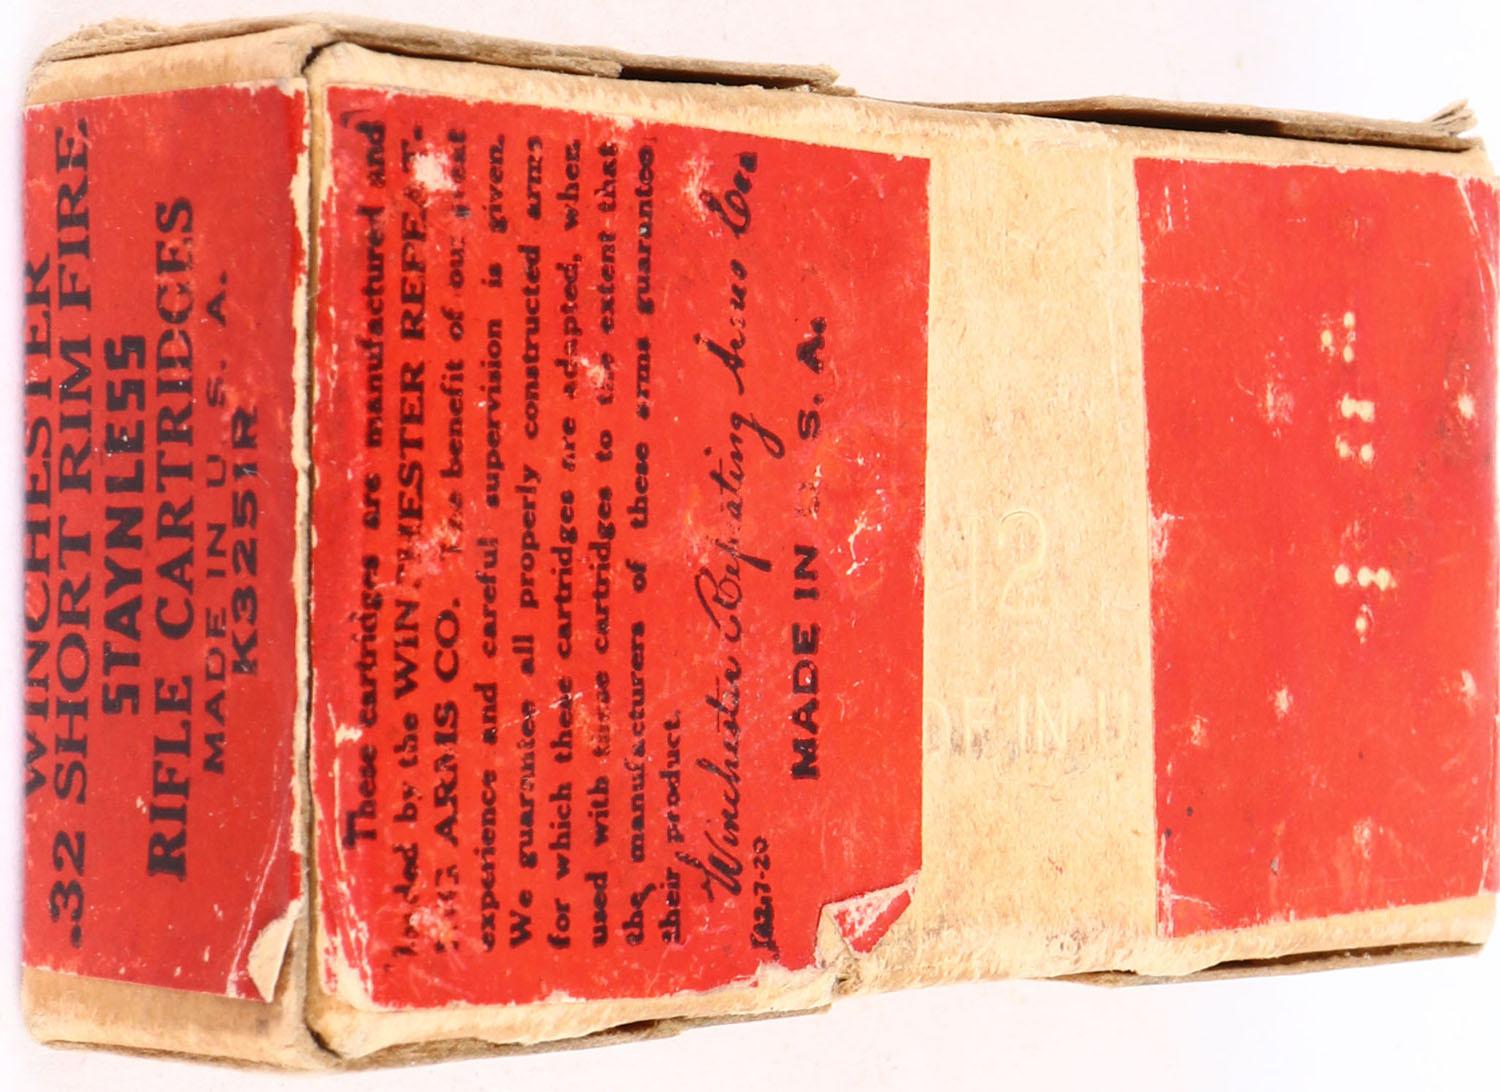 WINCHESTER
.32 SHORT RIM FIRE
STAYNLESS
RIFLE CARTRIDGES
MADE IN U. S. A.
K3251R
These cartridges are manufactured and
loaded by the WINCHESTER REPEAT-
ING ARMS CO. The benefit of our great
experience and careful supervision is given.
We guarantee all properly constructed arms
for which these cartridges are adapted, when
used with these cartridges to the extent that
the manufacturers of these arms guarantee
their product.
Winchester Repeating Arms Co.
MADE IN U. S. A.
7-20
12
DE IN U